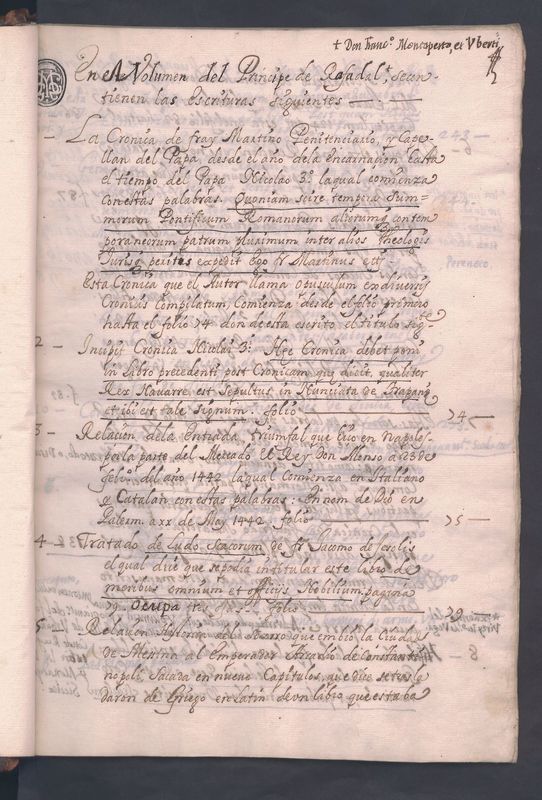 + Don Franc.º Montaperto, et Uberti
En el Volumen del Principe de Rafadal,+ se con-
tienen las escrituras siguientes
La Cronica de fray Martino Penitenciario, y Cape-
llan del Papa, desde el año dela Encarnacion hasta
el tiempo del Papa Nicolao 3º. la qual comienza
con estas palabras. Quoniam scire tempora Sum=
morum Pontificum Romanorum aliorumq contem
poraneorum patrum plurimum inter alios Theologis
Jurisq peritis expedit Ego fr Martinus etc
Esta Cronica que el Autor llama opusculum ex diversis
Cronicis Compilatum, Comienza desde el folio primero
hasta el folio 74 donde esta escrito el titulo sigte
2 - Incipit Cronica Nicolai 3i. Hec Cronica debet poni
in libro precedenti post Cronicam que dicit, qualiter
Rex Navarre est Sepultus in Nunciata de Trapano
et ibi est tale signum. folio 74
3 - Relacion dela Entrada triumfal que hizo en Napoles
por la parte del Mercado el Rey Don Alonso a 23 de
febro del año 1442 la qual Comienza en Italiano
y Catalan con estas palabras: En nom de Deo en
Palerm a xx de May 1442. folio 75
4 - Tratado de Ludo Scacorum de fr Jacomo de Cesolis
el qual dice que se podia intitular este libro de
moribus omnium et officijs Nobilium, pagina
Ocupa folio 79
5 Relacion que embio la Ciudad
de Messina al Emperador Arcadio de Constanti
nopoli, Sacada en nueve Capitulos, que dice se trasla
daron de Griego en Latin de un libro que estaba